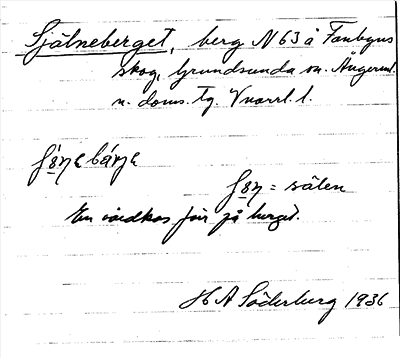 Själneberget, berg N 63 å Fanbyns
skog, Grundsunda sn. Ångerml.
n. doms. tg. Vnorrl. l.
= sälen
En vårdkas för på berget.
H A Söderberg 1936